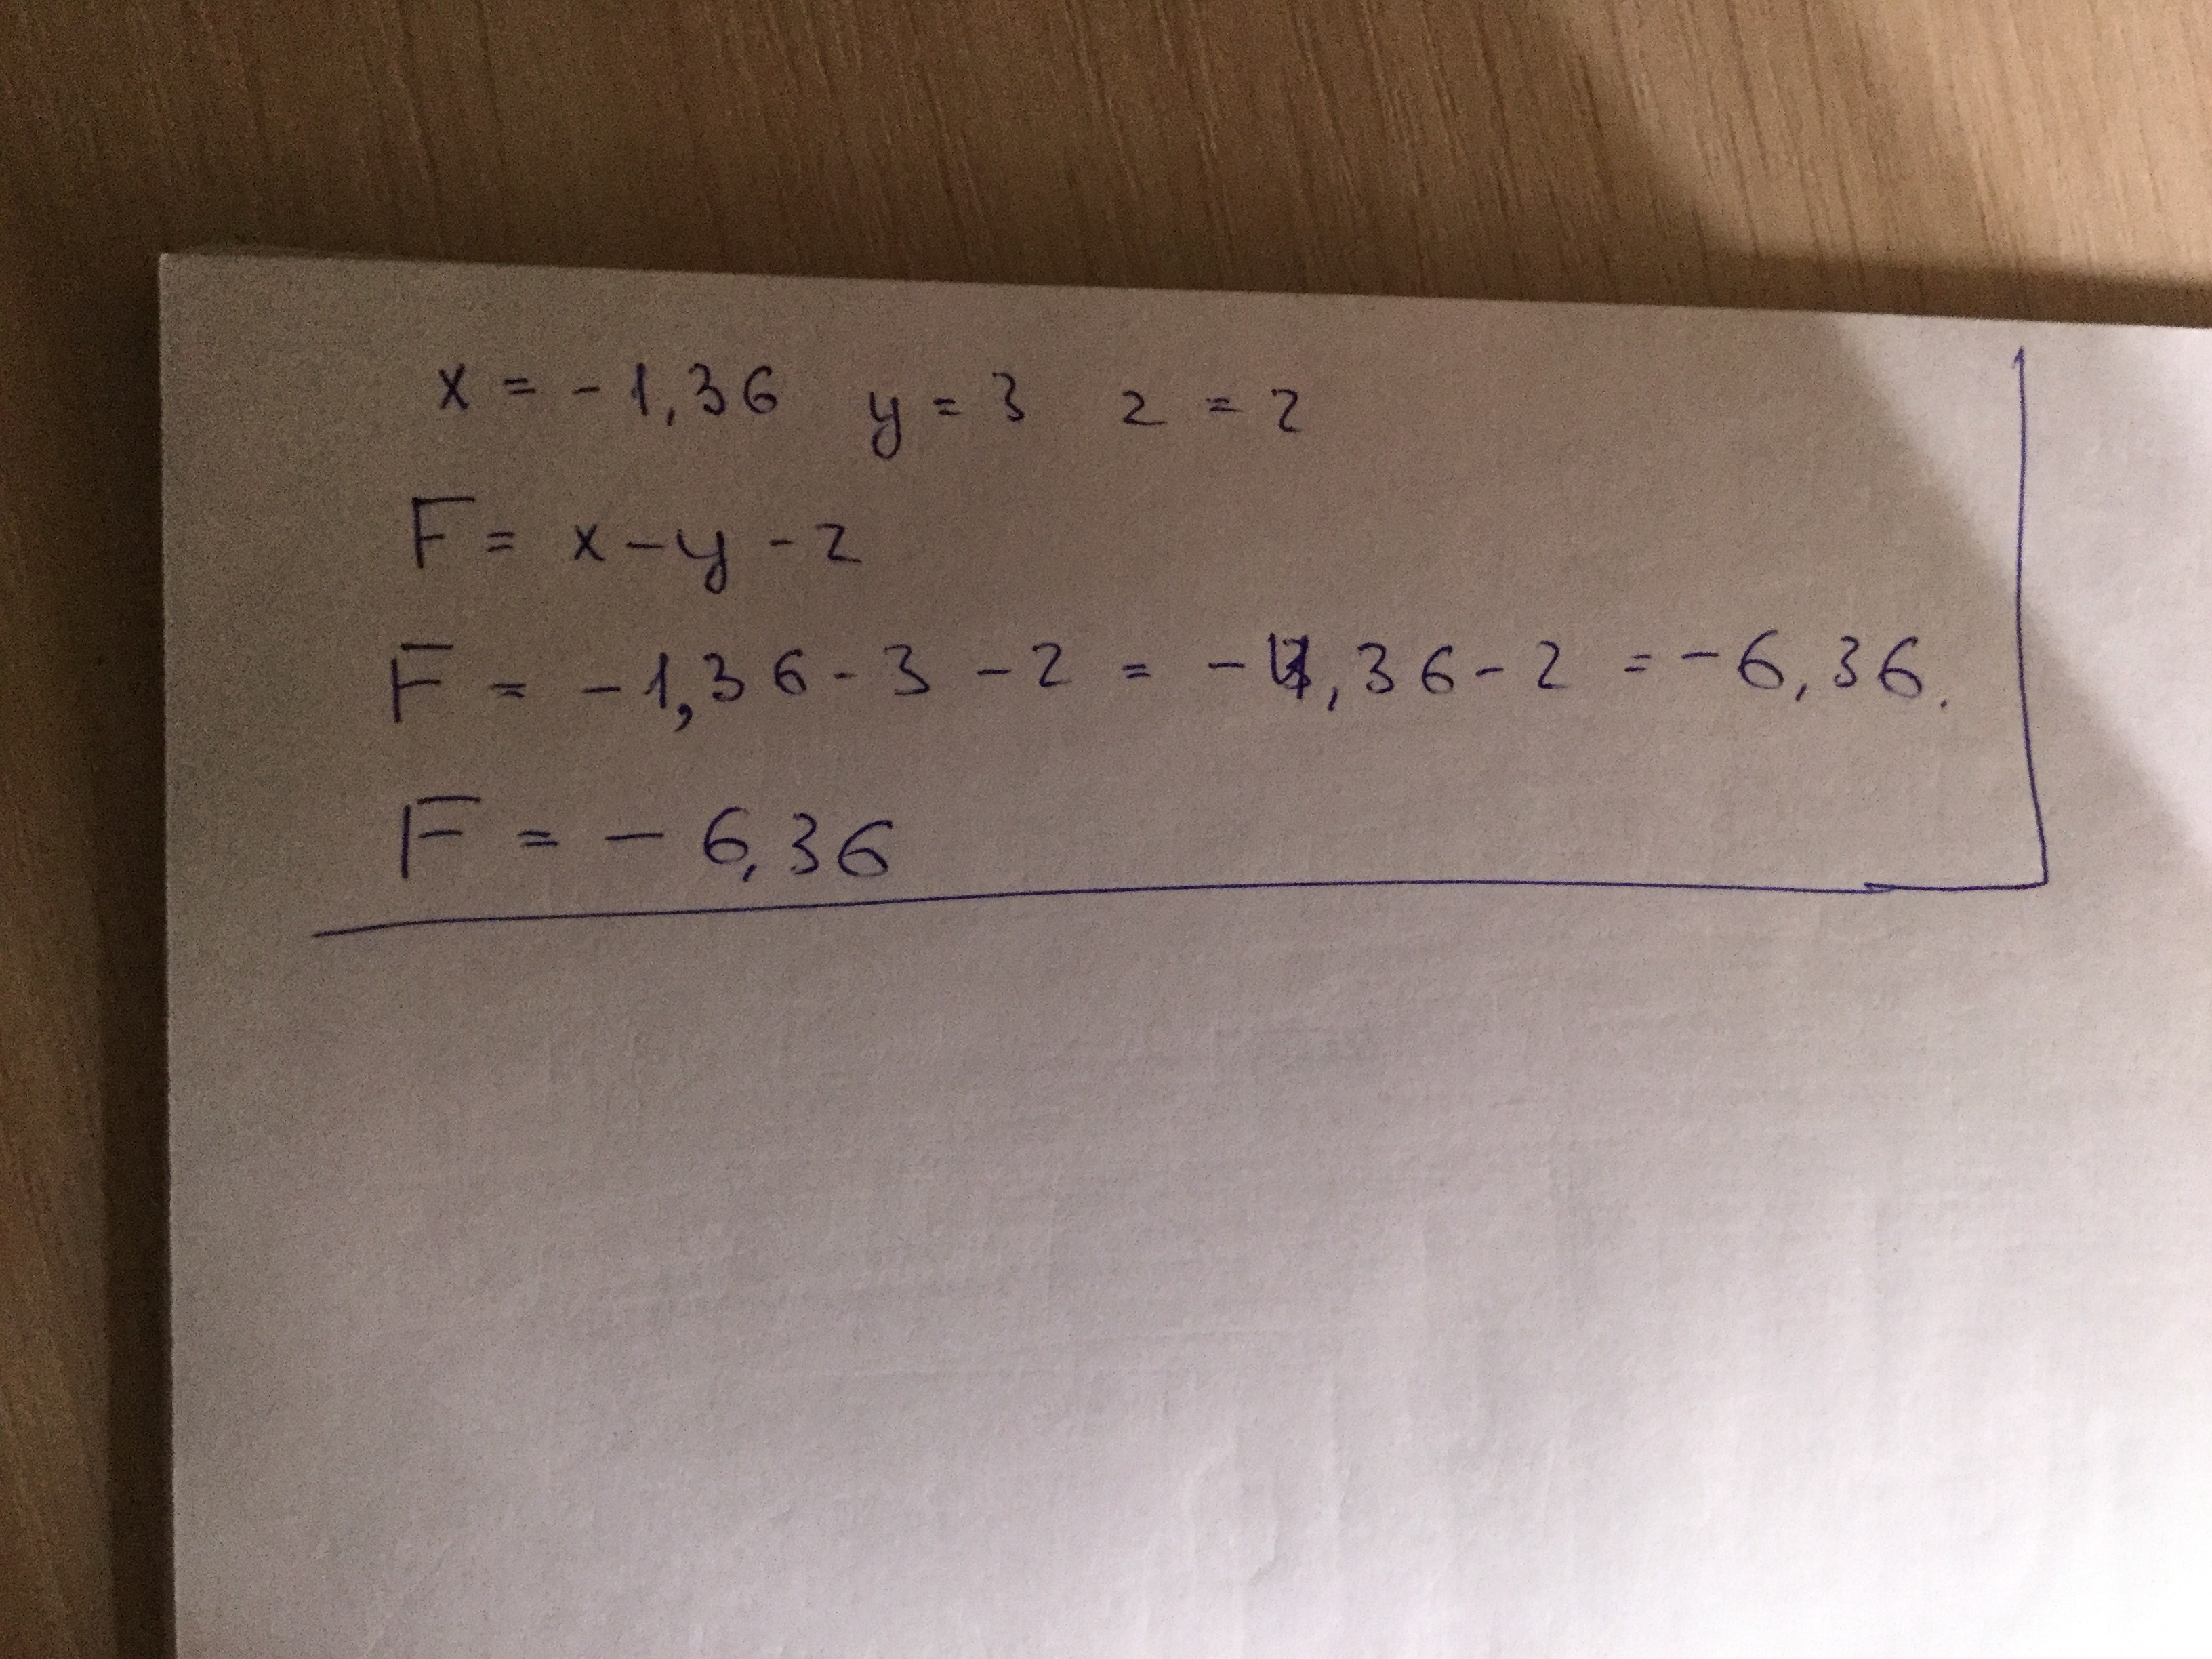 x = -1,36 y = 3 z = 2
F = x - y - z
F = -1,36 - 3 - 2 = -4,36 - 2 = -6,36.
F = -6,36